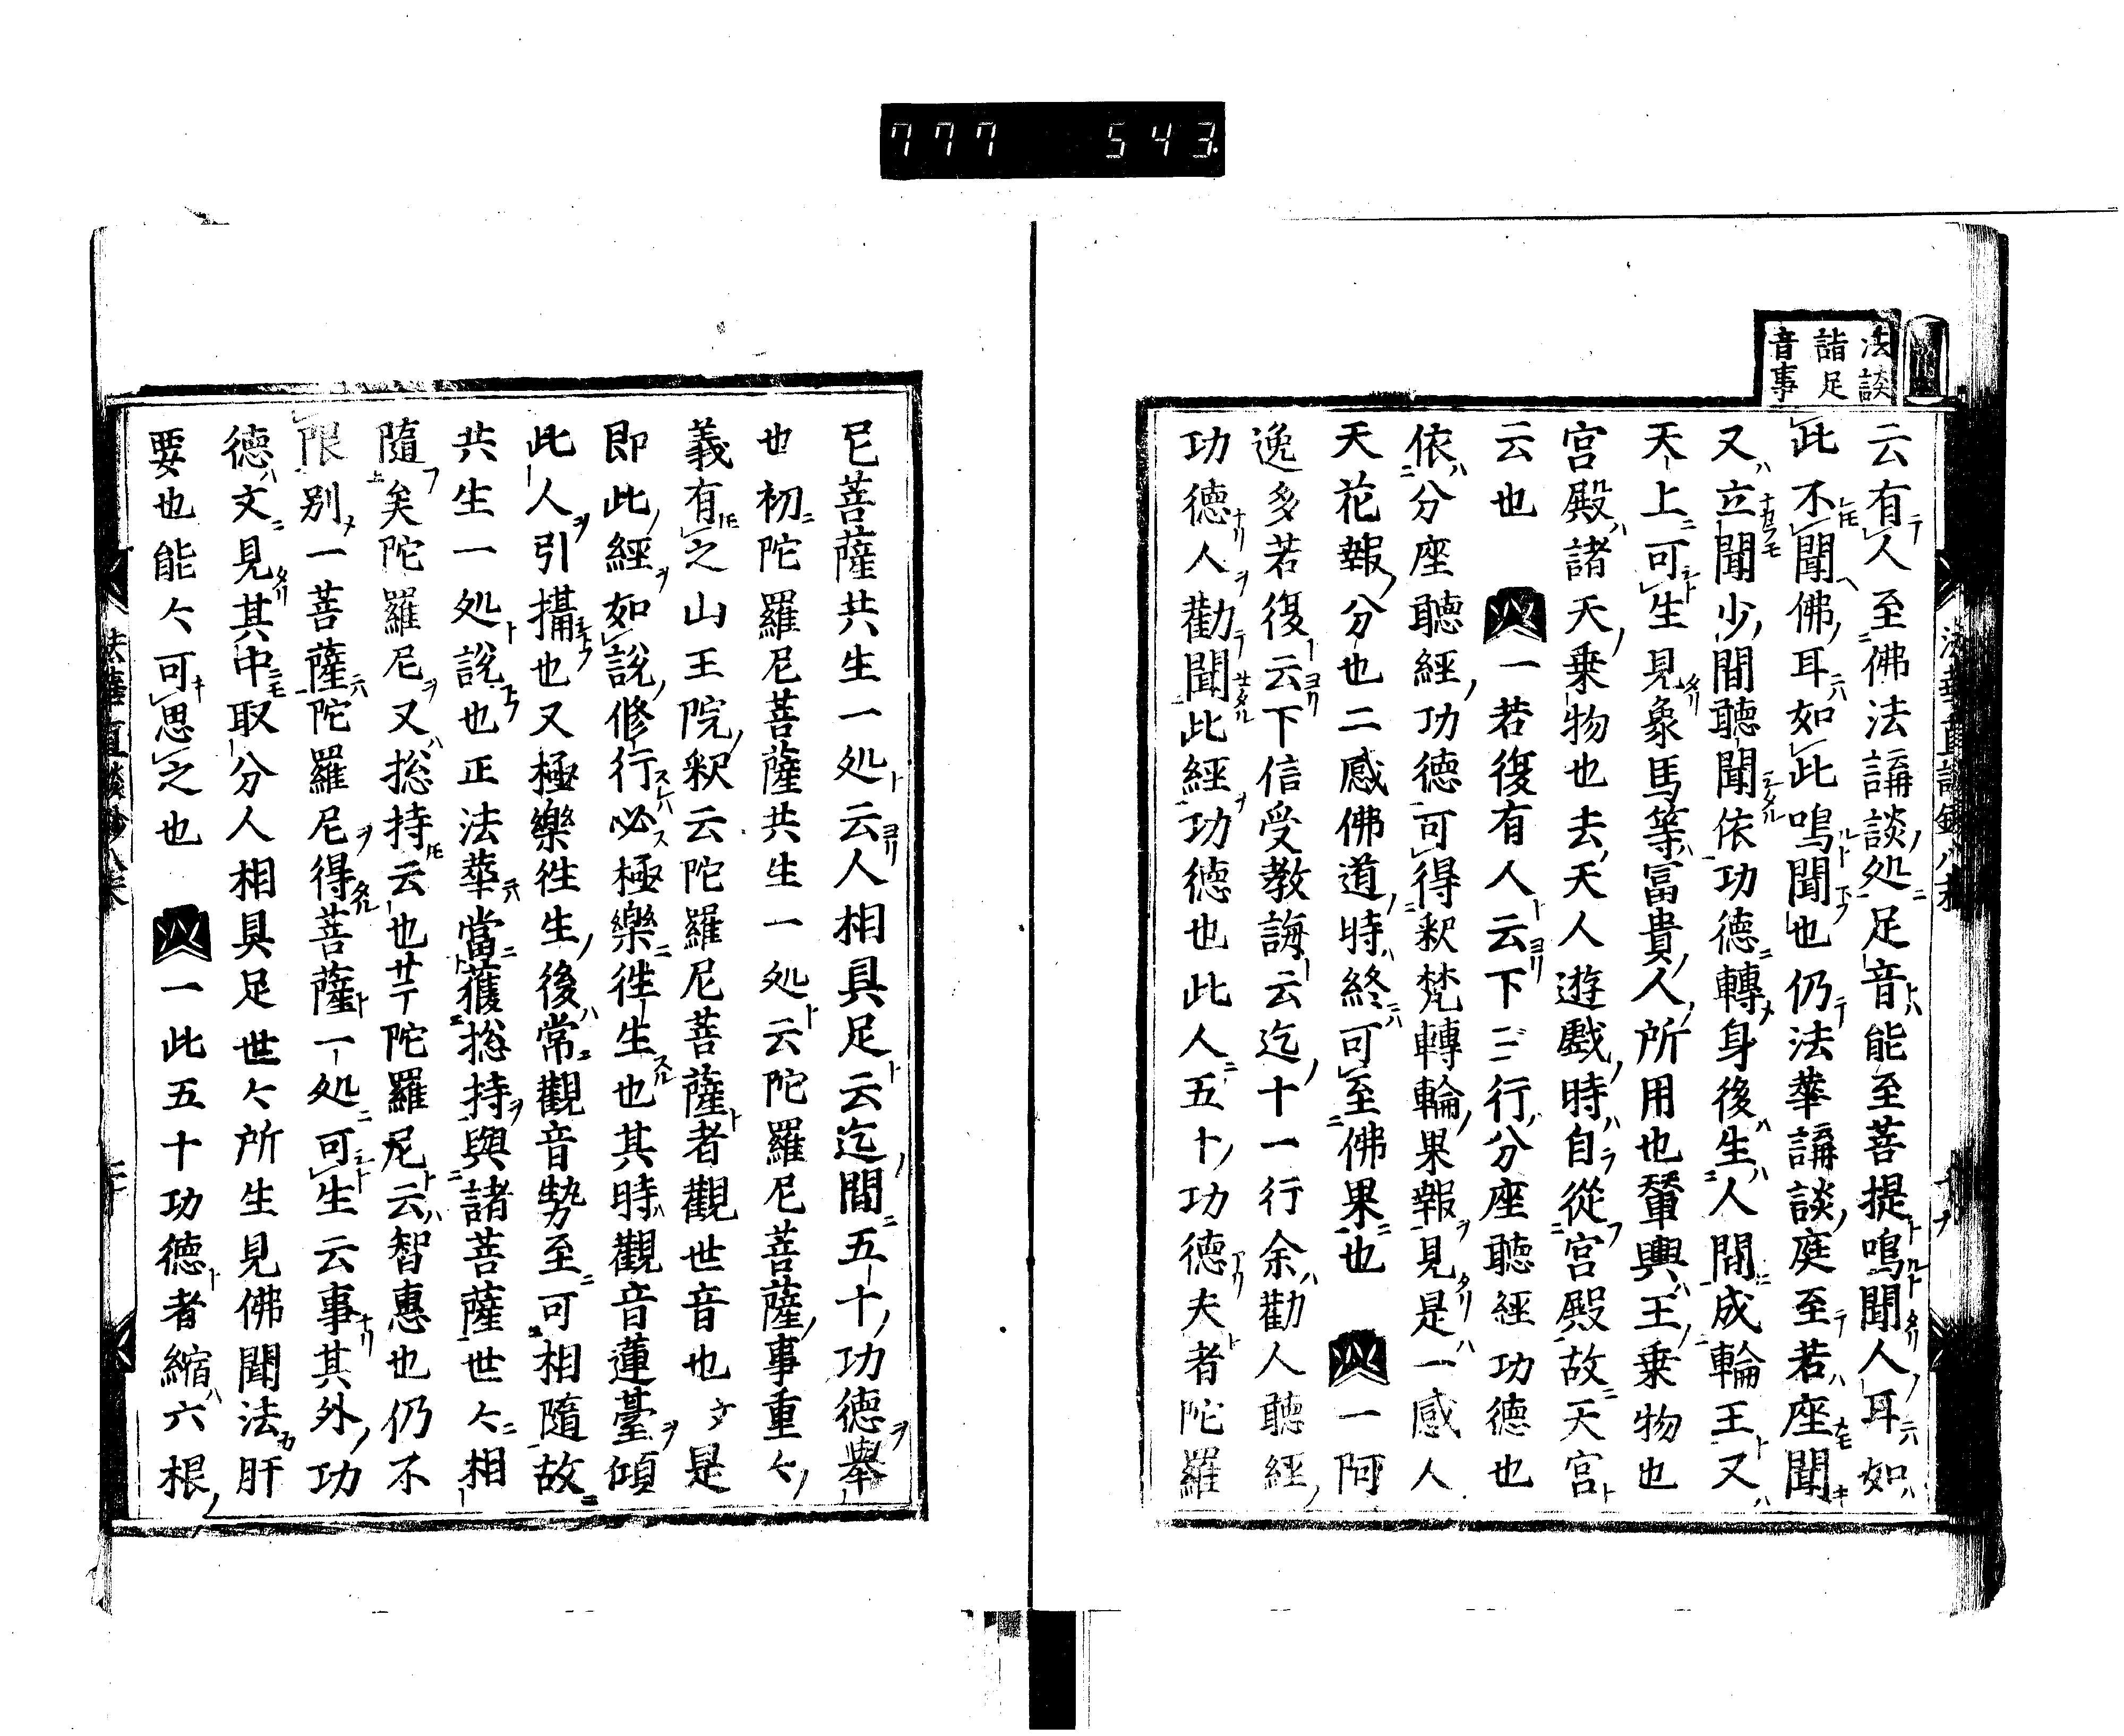 777 543
法談
詣足
音事
云有人至佛法講談処足音能至菩提鳴聞人耳如
此不聞佛耳如此鳴聞也仍法華講談庭至若座聞
又立聞少間聽聞依功德轉身後生人間成輪王又
天上可生見象馬等冨貴人所用也輦輿王乗物也
宮殿諸天乗物也去天人遊戲時自從宮殿故天宮
云也 一若復有人云下三行分座聽經功德也
依分座聽經功德可得釈梵轉輪果報見是一感人
天花報分也二感佛道時終可至佛果也 一阿
逸多若復云下信受教誨云迄十一行余勸人聽經
功德人勸聞此經功德也此人五十功德夫者陀羅
尼菩薩共生一処云人相具足云迄間五十功德舉
也初陀羅尼菩薩共生一処云陀羅尼菩薩事重々
義有之山王院釈云陀羅尼菩薩者觀世音也文是
即此經如說修行必極樂徃生也其時觀音蓮臺傾
此人引攝也又極樂徃生後常觀音勢至可相隨故
共生一処說也正法華當獲捴持與諸菩薩世々相
隨矣陀羅尼又捴持云也陀羅尼云智惠也仍不
限別一菩薩陀羅尼得菩薩一処可生云事其外功
德文見其中取分人相具足世々所生見佛聞法肝
要也能々可思之也 一此五十功德者縮六根